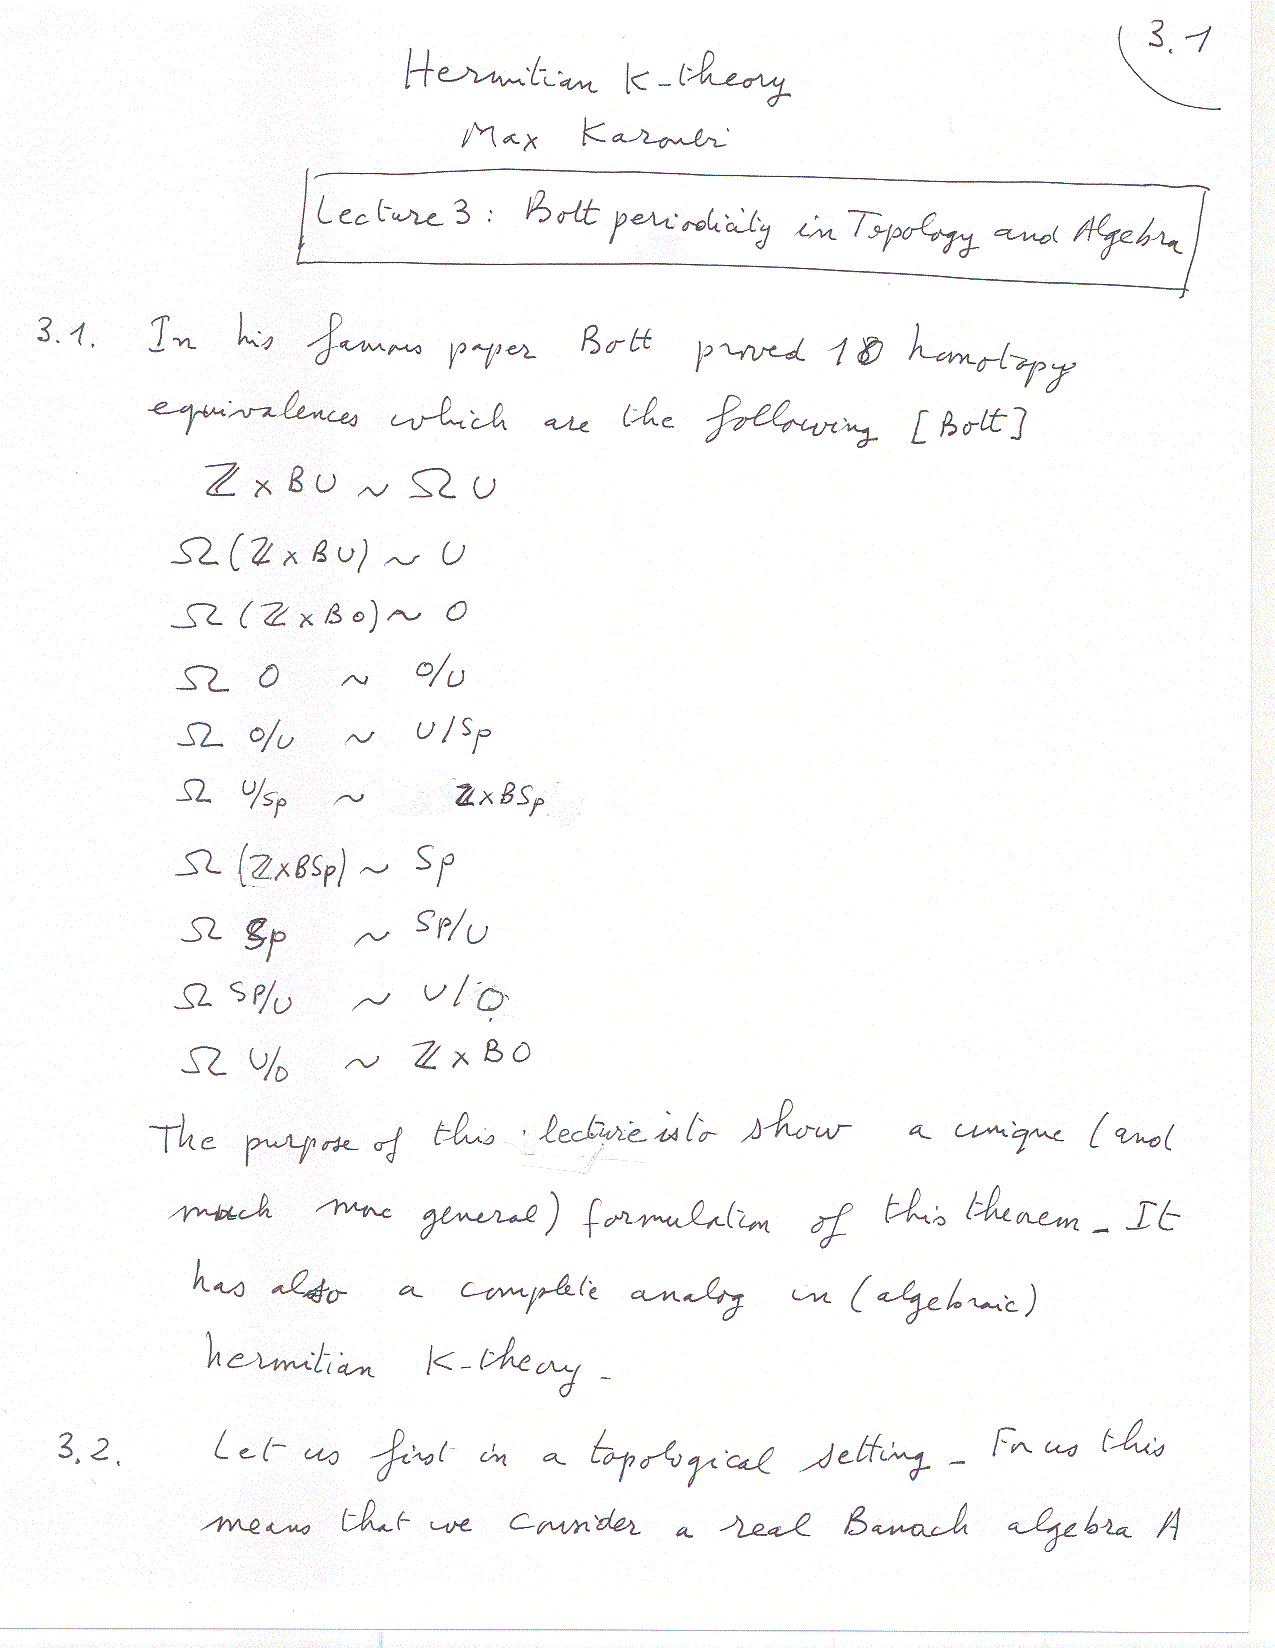 3.1
Hermitian K-theory
Max Karoubi
Lecture 3 : Bott periodicity in Topology and Algebra
3.1. In his famous paper Bott proved 10 homotopy
equivalences which are the following [Bott]
ℤ × BU ~ Ω U
Ω (ℤ × BU) ~ U
Ω (ℤ × BO) ~ O
Ω O ~ O/U
Ω O/U ~ U/Sp
Ω U/Sp ~ ℤ×BSp
Ω (ℤ×BSp) ~ Sp
Ω Sp ~ Sp/U
Ω Sp/U ~ U/O
Ω U/O ~ ℤ × BO
The purpose of this lecture is to show a unique (and
much more general) formulation of this theorem_ It
has also a complete analog in (algebraic)
hermitian K-theory_
3.2. Let us first in a topological setting_ For us this
means that we consider a real Banach algebra A